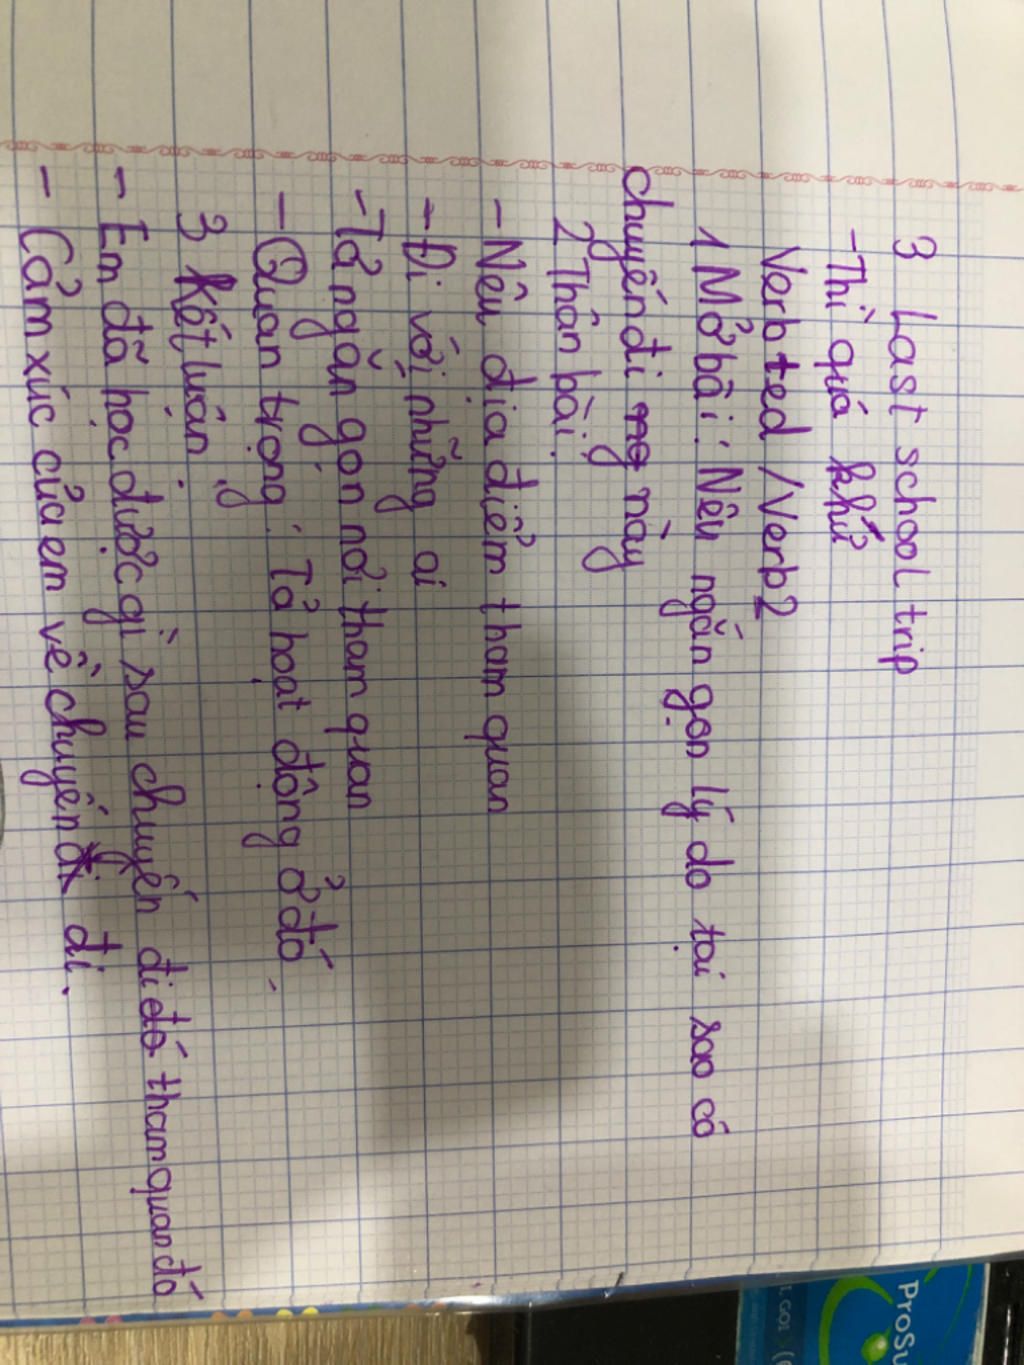 3 Last school trip
- Thì quá khứ
Verb + ed / Verb 2
1 Mở bài : Nêu ngắn gọn lý do tại sao có
chuyến đi này
2 Thân bài :
- Nêu địa điểm tham quan
- Đi với những ai
- Tả ngắn gọn nơi tham quan
- Quan trọng : Tả hoạt động ở đó
3 Kết luận :
- Em đã học được gì sau chuyến đi đó tham quan đó
- Cảm xúc của em về chuyến đi.
ProSu